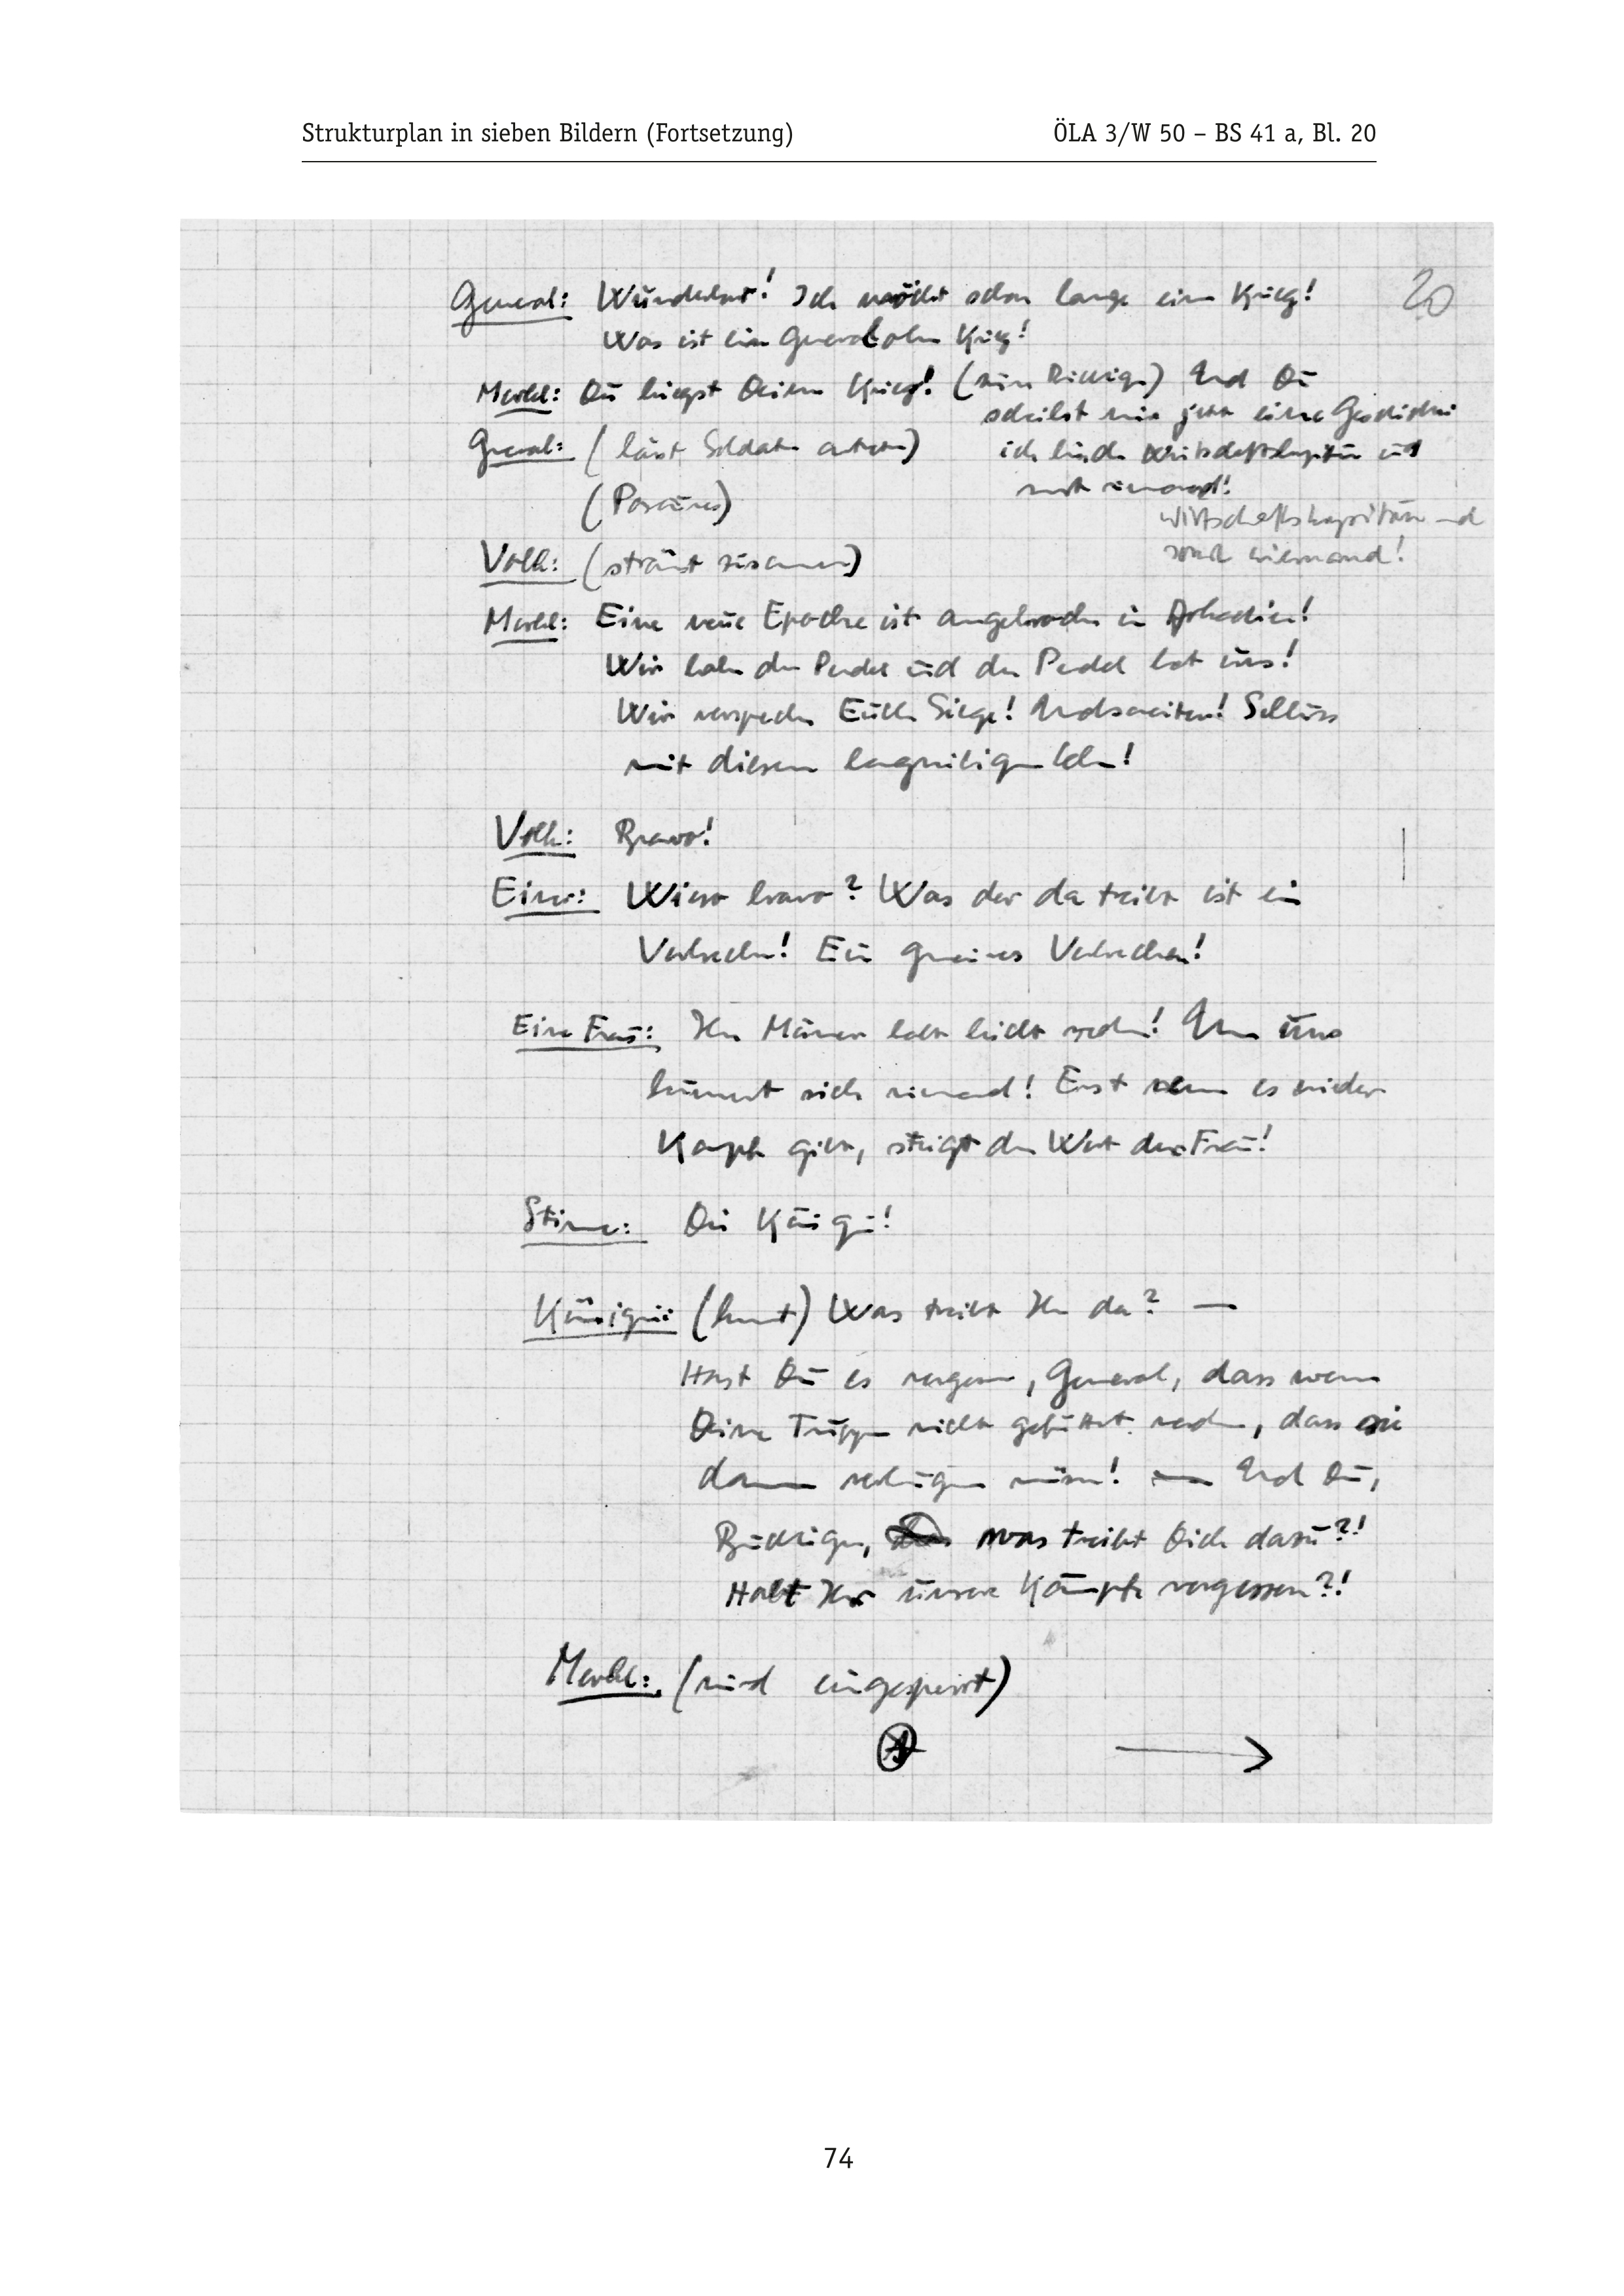 Strukturplan in sieben Bildern (Fortsetzung)
ÖLA 3/W 50 – BS 41 a, Bl. 20
20
General: Wunderbar! Ich möcht schon lange einen Krieg!
Was ist ein General ohne Krieg!
Merkl: Du kriegst Deinen Krieg! (zum Rüdiger) Und Du
schreibst mir jetzt eine Geschichte:
General: (lässt Soldaten antreten)
ich bin der Wirtschaftskapitän und
sonst niemand!
(Posaunen)
Wirtschaftskapitän und
sonst niemand!
Volk: (strömt zusammen)
Merkl: Eine neue Epoche ist angebrochen in Arkadien!
Wir haben den Pendel und der Pendel hat uns!
Wir versprechen Euch Siege! Schluss
mit diesem langweiligen Leben!
Volk: Bravo!
Einer: Wieso bravo? Was der da treibt ist ein
Verbrechen! Ein gemeines Verbrechen!
Eine Frau: Ihr Männer habt leicht reden! Um uns
kümmert sich niemand! Erst wenn es wieder
Kämpfe gibt, steigt der Wert der Frau!
Stimme: Die Königin!
Königin: (kommt) Was treibt Ihr da? —
Hast Du es vergessen, General, dass wenn
Deine Truppen nicht gefüttert werden, dass sie
dann verhungern müssen! — Und Du,
Rüdiger, was treibt Dich dazu?!
Habt Ihr unsere Kämpfe vergessen?!
Merkl: (wird eingesperrt)
74